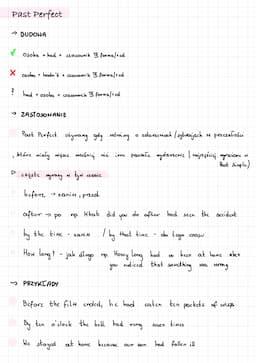 Past Perfect
→ BUDOWA
✓ osoba + had + czasownik III forma/+ed
✗ osoba + hadn't + czasownik III forma/+ed
? had + osoba + czasownik III forma/+ed
→ ZASTOSOWANIE
Past Perfect używamy gdy mówimy o zdarzeniach/sytuacjach w przeszłości
, które miały miejsce wcześniej niż inne przeszłe wydarzenie (najczęściej wyrażone w
Past Simple)
częste wyrazy w tym czasie
before → zanim, przed
after → po np. What did you do after had seen the accident
by the time - zanim / by that time - do tego czasu
How long? - jak długo np. How long had you been at home when
you noticed that something was wrong
→ PRZYKŁADY
Before the film ended, he had eaten ten packets of crisps
By ten o'clock the bell had rung seven times
We stayed at home because our son had fallen ill